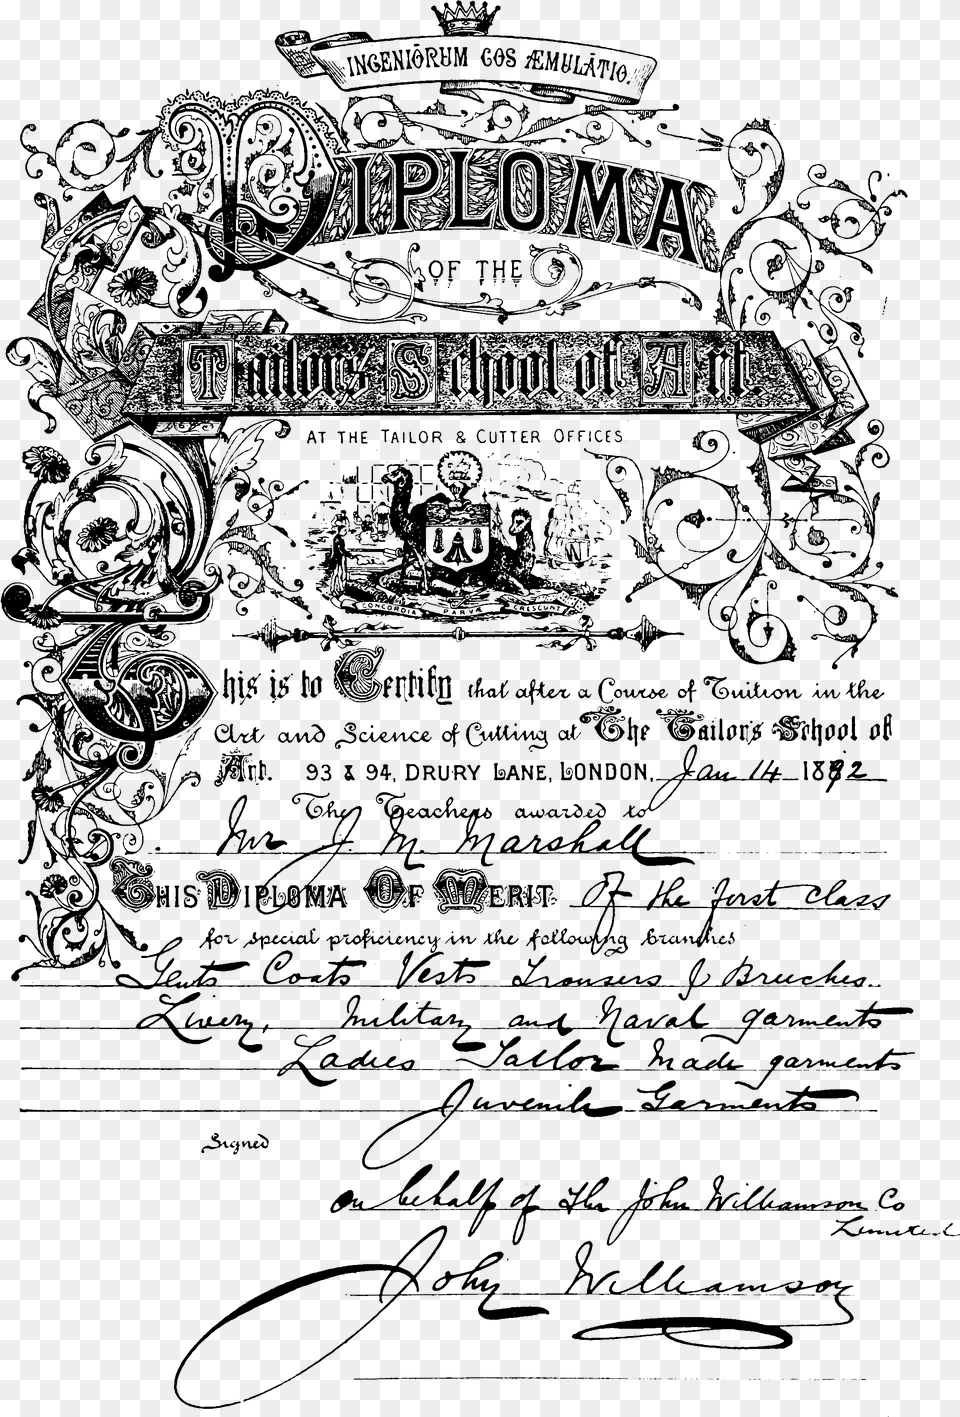 INGENIŌRUM COS ÆMULĀTIO.
DIPLOMA
OF THE
Tailors School of Art.
AT THE TAILOR & CUTTER OFFICES
CONCORDIA PARVÆ CRESCUNT
This is to Certify that after a Course of Tuition in the
Art and Science of Cutting at The Tailor's School of
Art. 93 & 94, DRURY LANE, LONDON, Jan 14 1892
The Teachers awarded to
Mr J. M. Marshall
THIS DIPLOMA OF MERIT Of the first class
for special proficiency in the following branches
Gents Coats Vests Trousers & Breeches.
Livery, Military and Naval garments
Ladies Tailor Made garments
Juvenile Garments
Signed
on behalf of The John Williamson Co
Limited
John Williamson